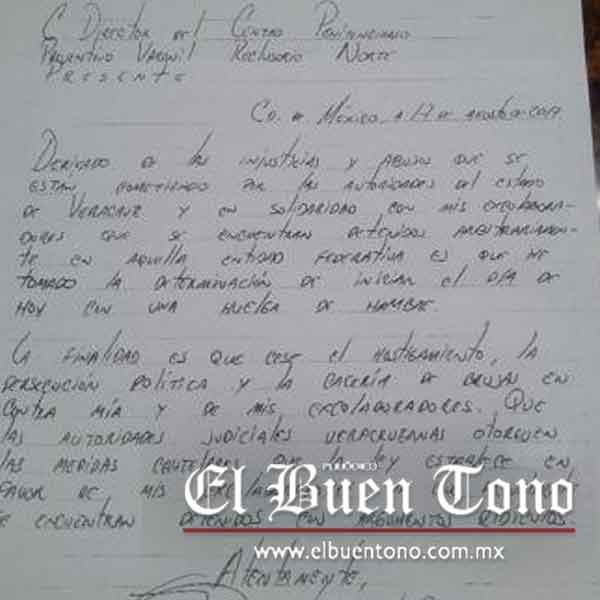 C Director del Centro Penitenciario
Preventivo Varonil Reclusorio Norte
PRESENTE
Cd. de México, a 17 de agosto de 2017
Derivado de las injusticias y abusos que se
están cometiendo por las autoridades del estado
de Veracruz y en solidaridad con mis excolabora-
dores que se encuentran detenidos arbitrariamen-
te en aquella entidad federativa es que he
tomado la determinación de iniciar el día de
hoy con una huelga de hambre.
La finalidad es que cese el hostigamiento, la
persecución política y la cacería de brujas en
contra mía y de mis excolaboradores. Que
las autoridades judiciales veracruzanas otorguen
las medidas cautelares que la ley establece en
favor de mis
se encuentran detenidos con argumentos ridículos.
Atentamente,
PERIÓDICO
El Buen Tono
www.elbuentono.com.mx